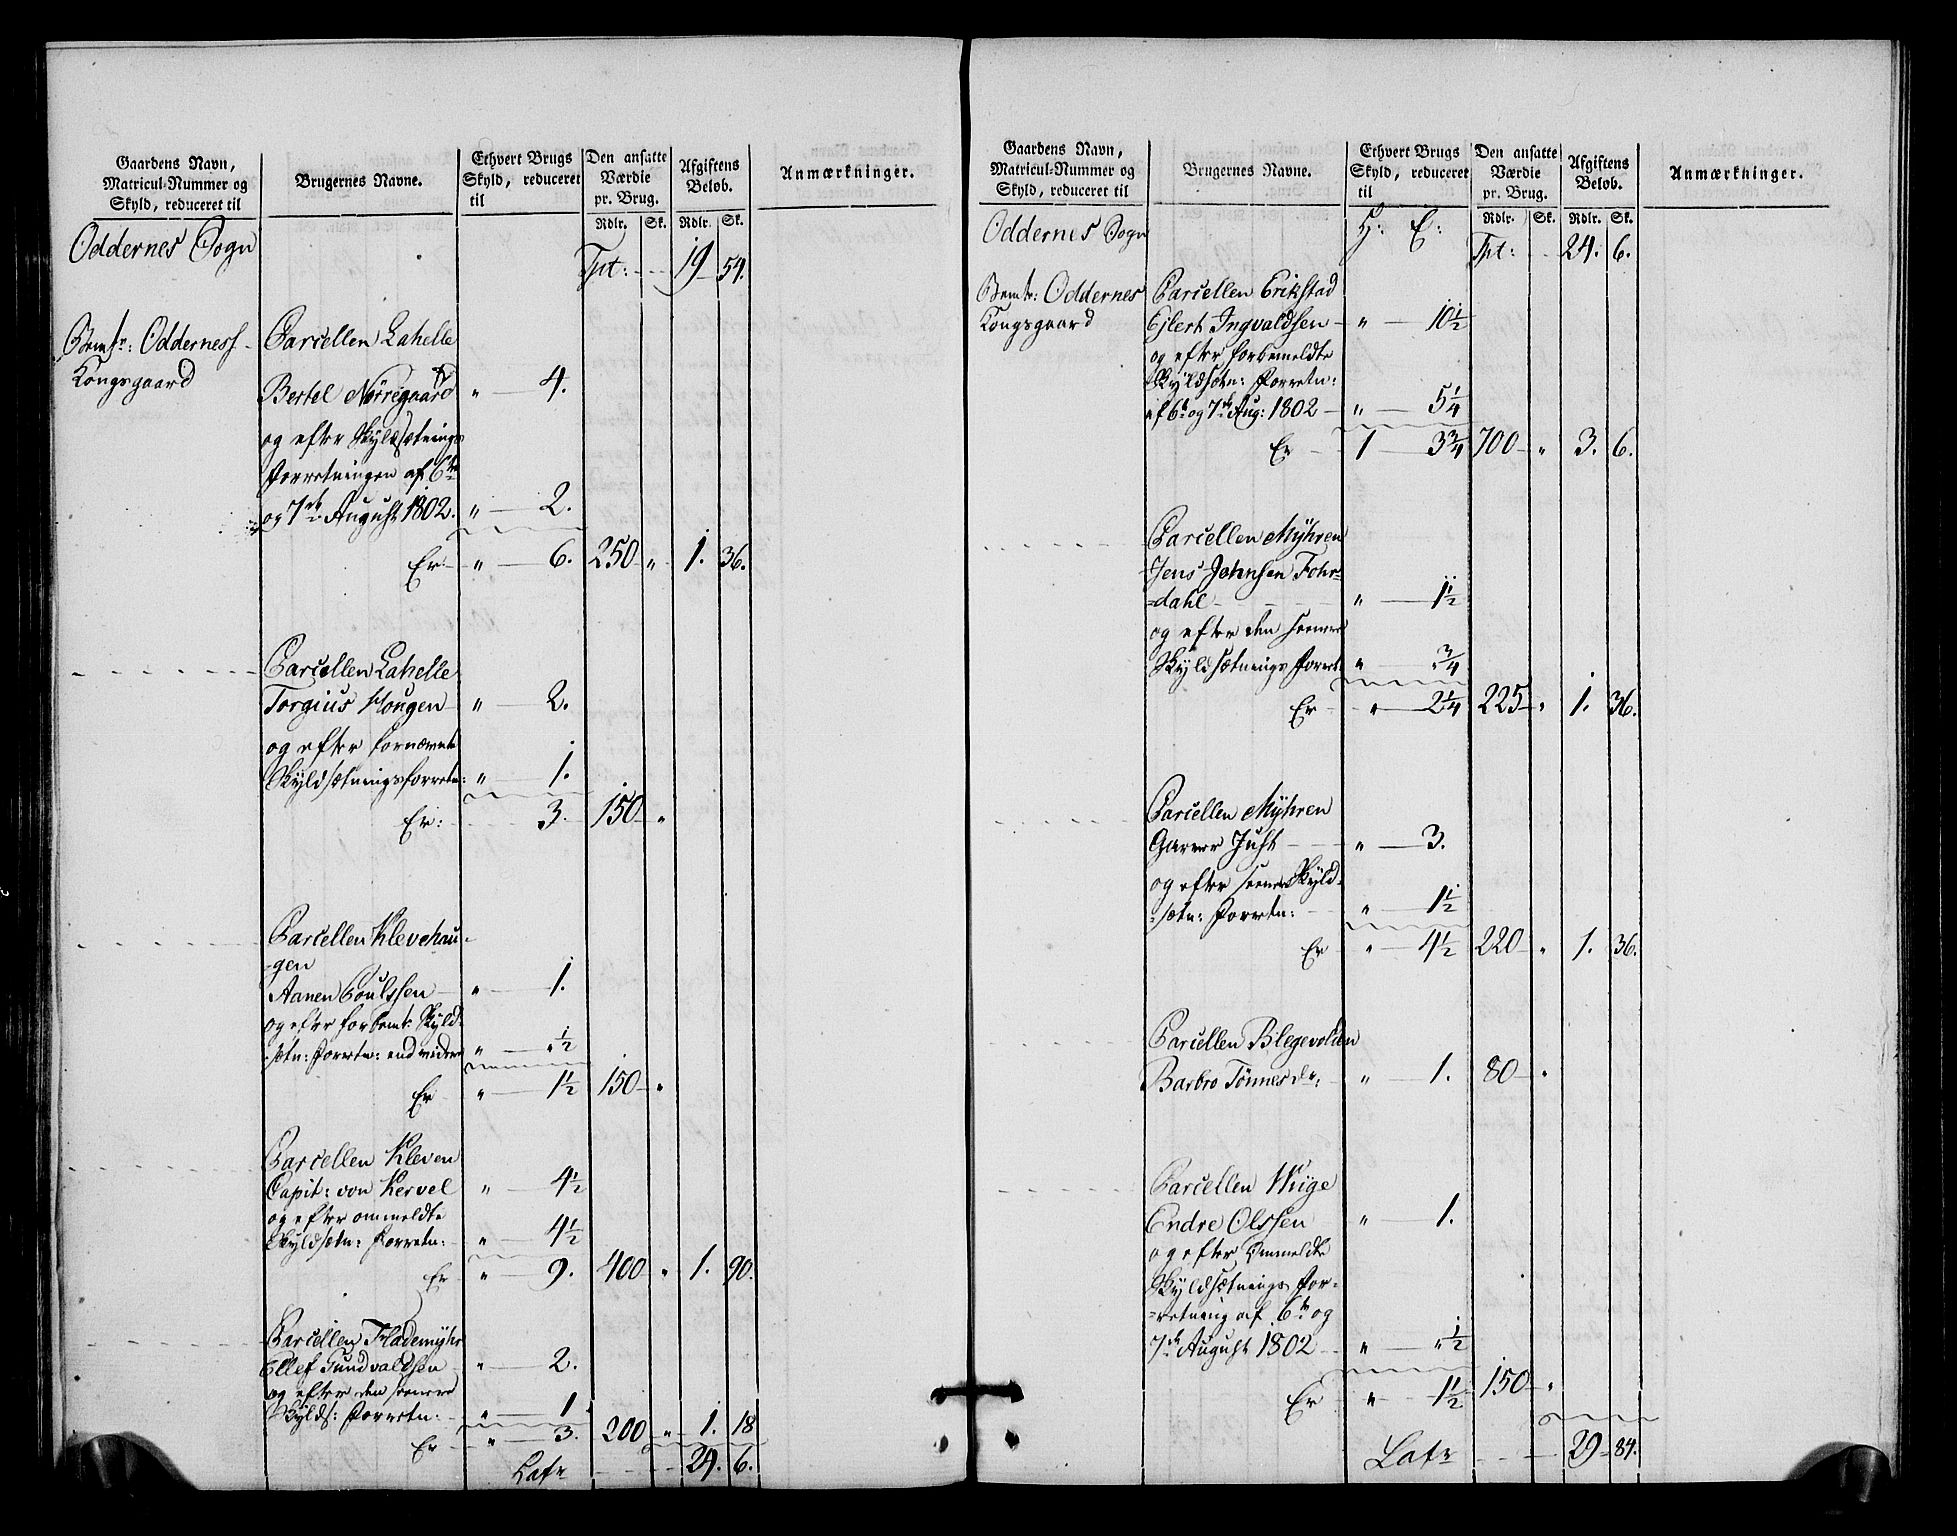 Gaardens Navn, Matricul-Nummer og Skyld, reduceret til
Brugernes Navne.
Ethvert Brugs Skyld, reduceret til
Den ansatte Værdie pr. Brug.
Afgiftens Beløb.
Anmærkninger.
Rdlr. Sk. Rdlr. Sk.
Oddernes Sogn
Tpt: 19 54.
Bemte: Oddernes Parcellen Lahelle
Kongsgaard
Bertel Nörregaard " 4.
og efter Skyldsætnings
Forretningen af 6te
og 7de August 1802. " 2.
Er " 6. 250 " 1. 36.
Parcellen Lahelle
Torgius Hougen " 2.
og efter fornævnte
Skyldsætningsforretn: " 1.
Er: 3. 150 "
Parcellen Klevehau-
gen
Aanen Poulssen " 1.
og efter forbemt: Skyld-
sætn: Forretn: endvidere " " ½
Er " 1½ 150 "
Parcellen Kleven
Capit: von Kervel " 4½
og efter ommeldte
Skyldsætn: Forretn: " 4½
Er " 9. 400 " 1. 90.
Parcellen Flademyhr
Ellef Gundvaldsen " 2.
og efter den seenere
Skylds: Forretn: " 1
Er " 3. 200 " 1. 18
Latr 24. 6.
Gaardens Navn, Matricul-Nummer og Skyld, reduceret til
Brugernes Navne.
Ethvert Brugs Skyld, reduceret til
Den ansatte Værdie pr. Brug.
Afgiftens Beløb.
Anmærkninger.
Rdlr. Sk. Rdlr. Sk.
Oddernes Sogn H: E:
Tpt: 24. 6.
Bemte: Oddernes Parcellen Erikstad
Kongsgaard Ejlert Ingvaldsen " 10½
og efter forbemeldte
Skyldsætn: Forretn:
af 6te og 7de Aug: 1802 " 5¼
Er 1 3¾ 700 " 3. 6.
Parcellen Myhren
Jens Johnsen Fohr=
=dahl " 1½
og efter den seenere
Skyldsætnings Forret: " " ¾
Er " 2¼ 225 " 1. 36.
Parcellen Myhren
Garver Just " 3.
og efter seenere Skyld-
sætn: Forretn: " 1½
Er " 4½ 220 " 1. 36.
Parcellen Blegevolden
Barbro Tönnesdr: " 1. 80 "
Parcellen Wiige
Endre Olssen " 1.
og efter Ommeldte
Skyldsætnings For=
=retning af 6te og
7de August 1802 " " ½
Er " 1½ 150 "
Latr 29 84.